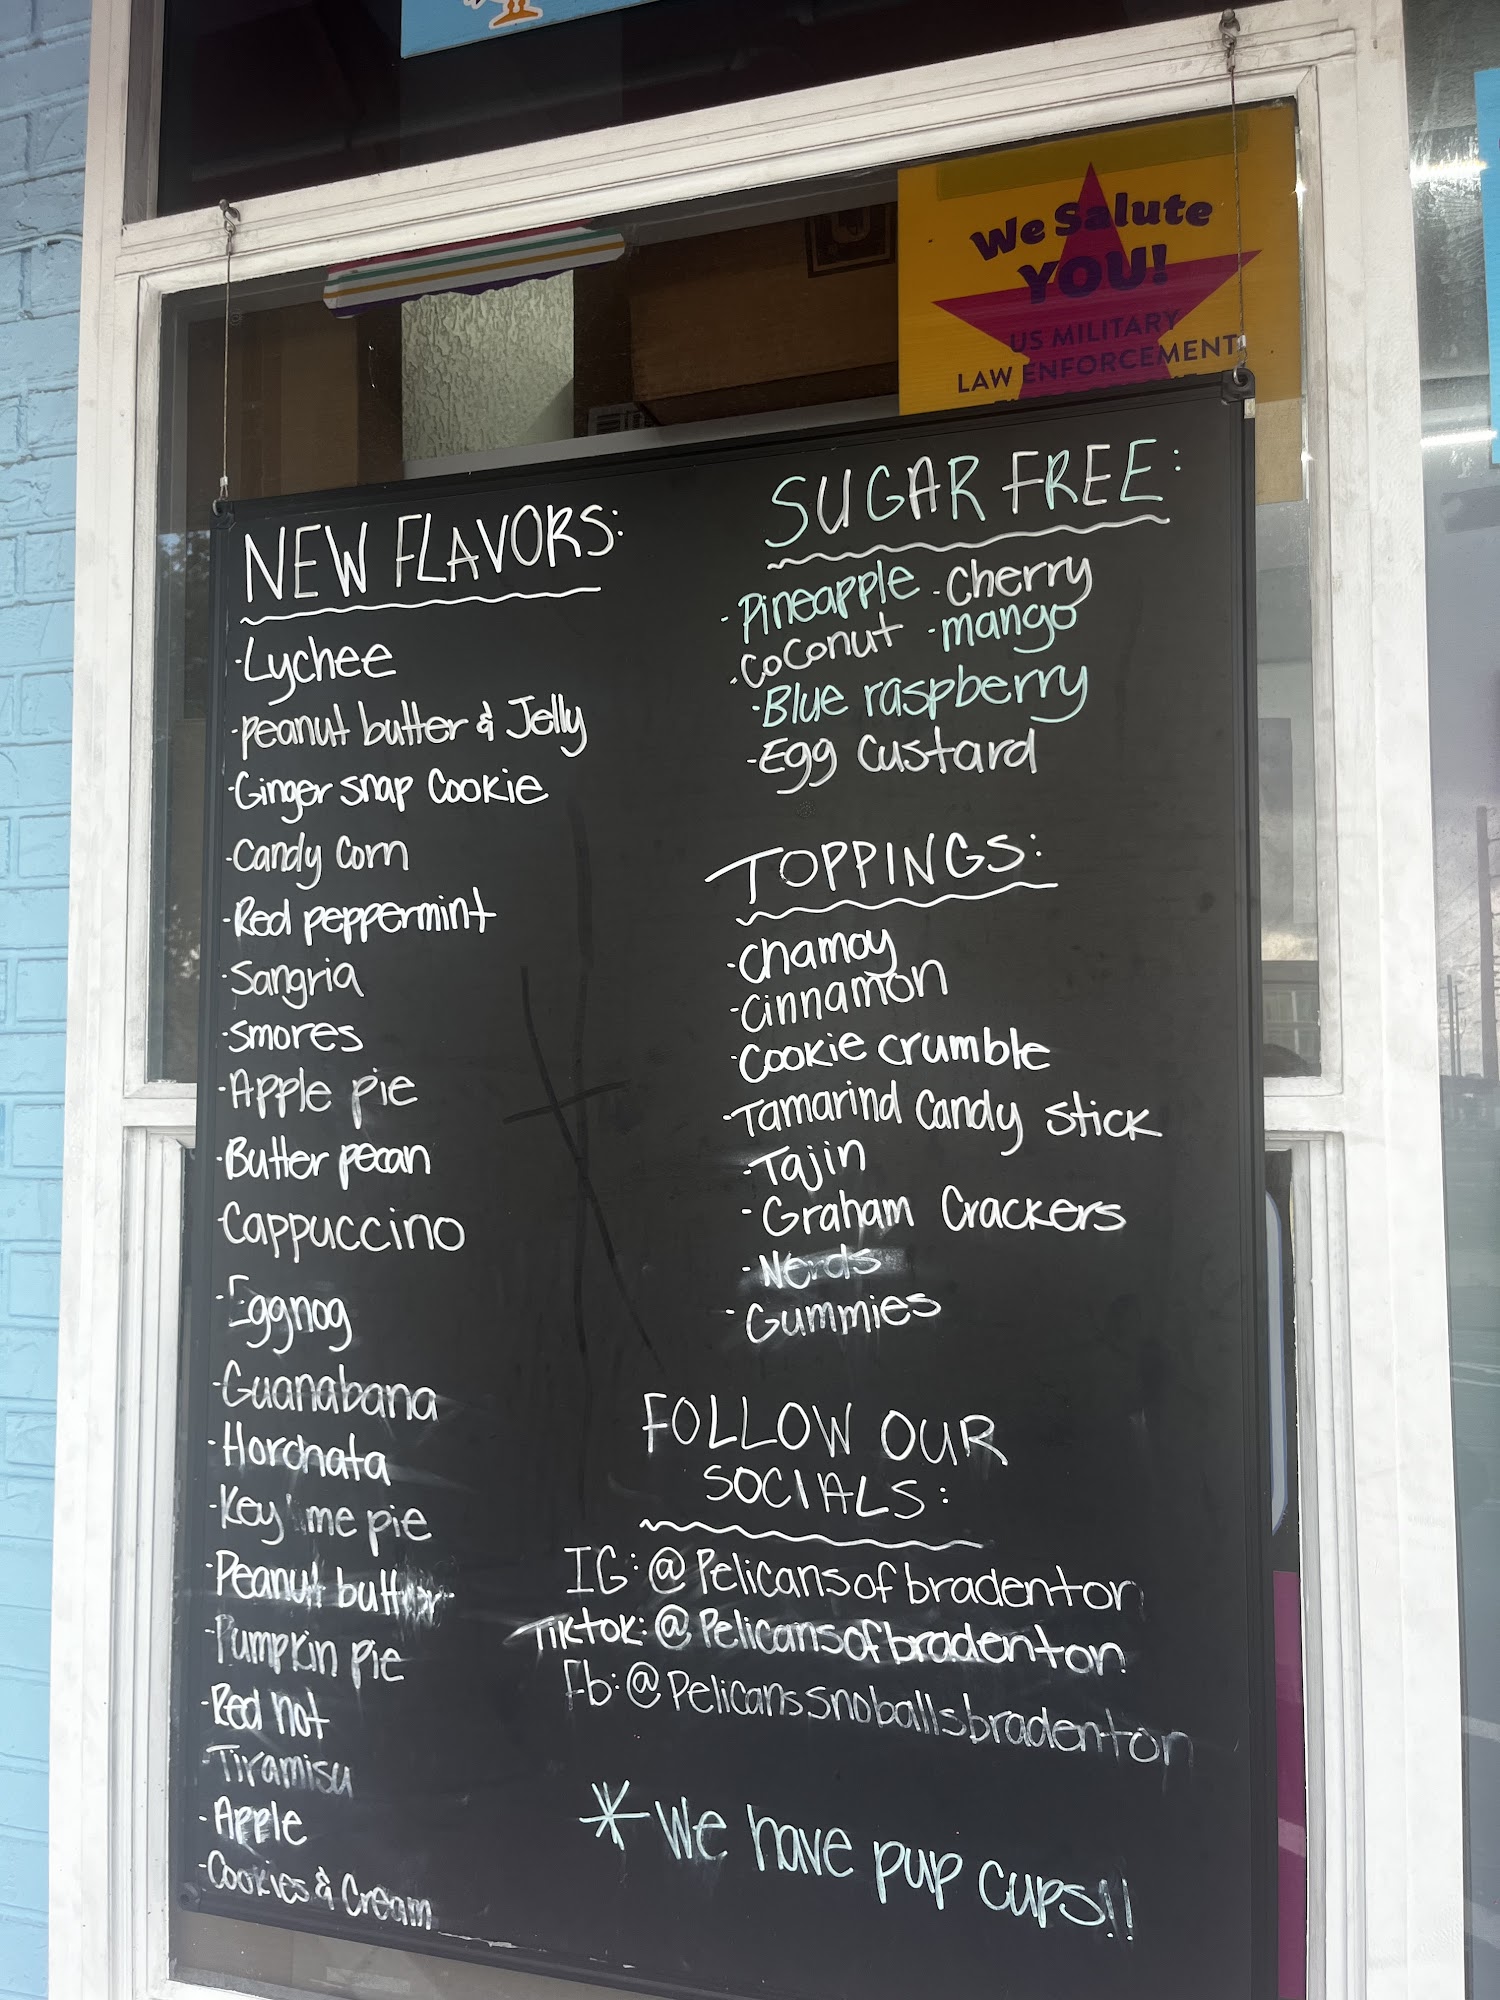 We Salute
YOU!
US MILITARY
LAW ENFORCEMENT
NEW FLAVORS:
·Lychee
·peanut butter & Jelly
·Ginger snap Cookie
·Candy Corn
·Red peppermint
·Sangria
·smores
·Apple pie
·Butter pecan
·Cappuccino
·Eggnog
·Guanabana
·Horchata
·Key me pie
·Peanut butter
·Pumpkin pie
·Red hot
·Tiramisu
·Apple
·Cookies & Cream
SUGAR FREE:
·Pineapple ·Cherry
·Coconut ·mango
·Blue raspberry
·Egg Custard
TOPPINGS:
·Chamoy
·Cinnamon
·Cookie crumble
·Tamarind Candy Stick
·Tajin
·Graham Crackers
·Nerds
·Gummies
FOLLOW OUR
SOCIALS:
IG: @Pelicansofbradenton
Tiktok: @Pelicansofbradenton
Fb: @Pelicanssnoballsbradenton
*We have pup cups!!